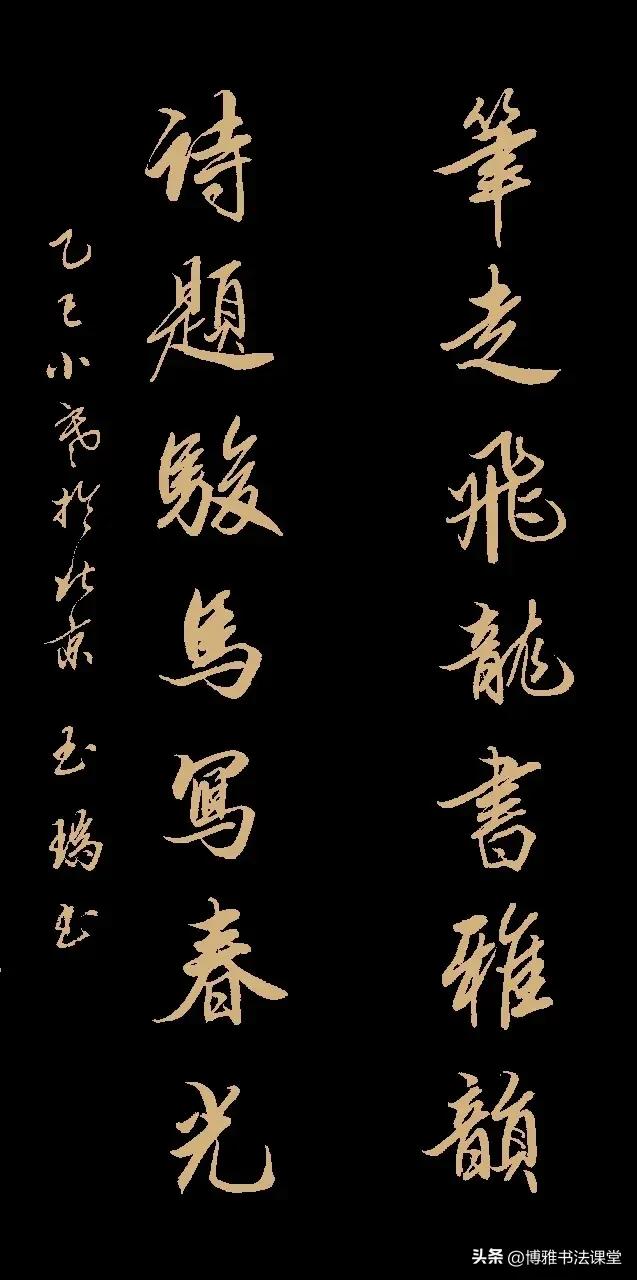 筆走飛龍書雅韻
詩題駿馬寫春光
乙巳小寒於北京 玉瑞书
头条 @博雅书法课堂